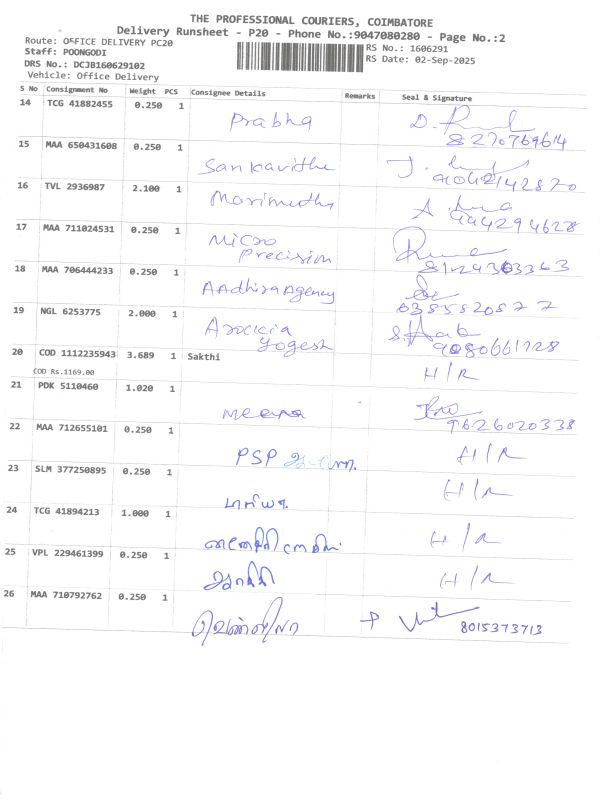 THE PROFESSIONAL COURIERS, COIMBATORE
Delivery Runsheet - P20 - Phone No.:9047080280 - Page No.:2
Route: OFFICE DELIVERY PC20
RS No.: 1606291
Staff: POONGODI
RS Date: 02-Sep-2025
DRS No.: DCJB160629102
Vehicle: Office Delivery
S No Consignment No Weight PCS Consignee Details Remarks Seal & Signature
14 TCG 41882455 0.250 1
Prabha D.
8270769614
15 MAA 650431608 0.250 1
Sankavithe J.
9042142820
16 TVL 2936987 2.100 1
Marimuthu A
944294628
17 MAA 711024531 0.250 1
Micro
Precision 8124303363
18 MAA 706444233 0.250 1
AAdhiraAgency
0385520877
19 NGL 6253775 2.000 1
Arockia
Yogesh 9080661728
20 COD 1112235943 3.689 1 Sakthi
COD Rs.1169.00 H/R
21 PDK 5110460 1.020 1
Meena
9626020338
22 MAA 712655101 0.250 1
PSP H/R
23 SLM 377250895 0.250 1
H/R
24 TCG 41894213 1.000 1
H/R
25 VPL 229461399 0.250 1
H/R
26 MAA 710792762 0.250 1
வெண்ணிலா P
8015373713